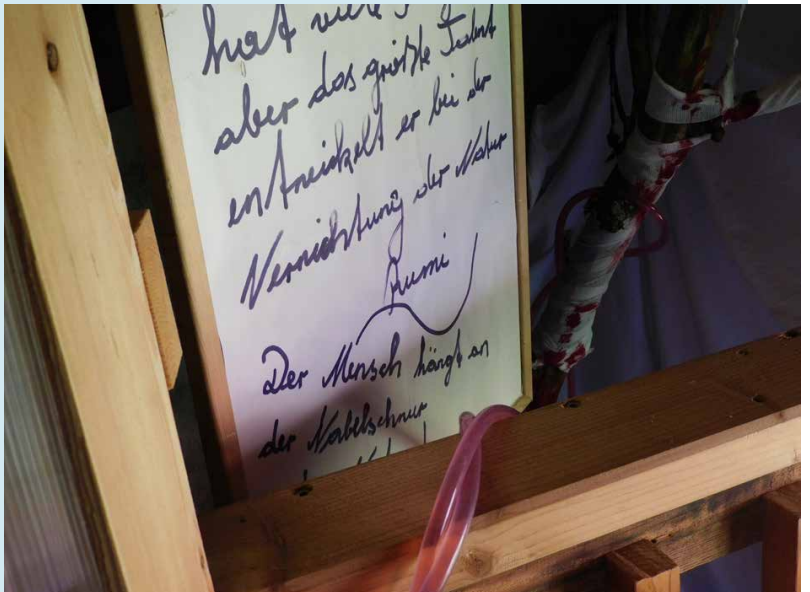 hat viele
aber das größte Talent
entwickelt er bei der
Vernichtung der Natur
Rumi
Der Mensch hängt an
der Nabelschnur